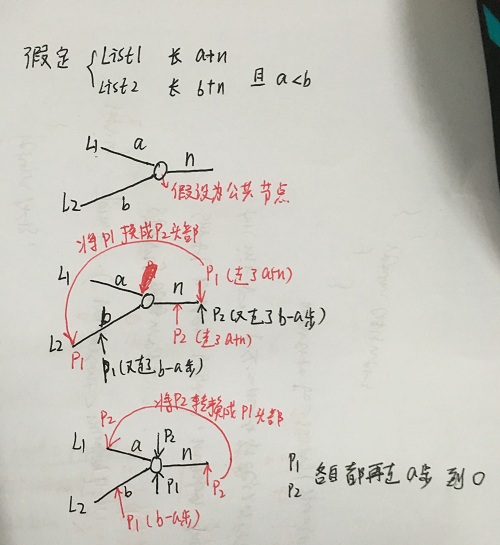 假定 { List1 长 a+n
List2 长 b+n 且 a<b
L1 a n
L2 b
假设为公共节点
将P1换成P2头部
L1 a n P1 (走了a+n)
P2 (又走了b-a步)
b P2 (走了a+n)
L2 P1 P1 (又走了b-a步)
将P2转换成P1头部
P2
L1 a P2 n
L2 b P1 P2
P1 (b-a步)
P1
P2 各自都再走a步 到O